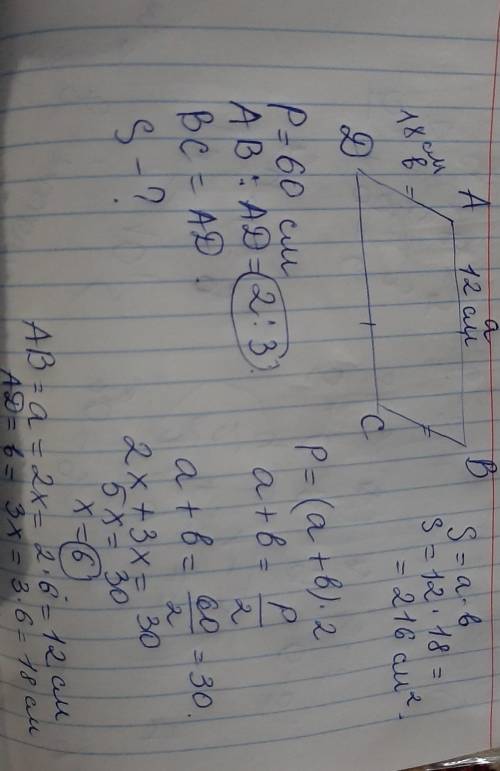 A a B
12 см
18 см
в
D C
S = a · в
S = 12 · 18 =
= 216 см².
P = 60 см
AB : AD = 2 : 3.
BC = AD.
S – ?
P = (a + в) · 2
a + в = P/2
a + в = 60/2 = 30.
2x + 3x = 30
5x = 30
x = 6
AB = a = 2x = 2 · 6 = 12 см
AD = в = 3x = 3 · 6 = 18 см